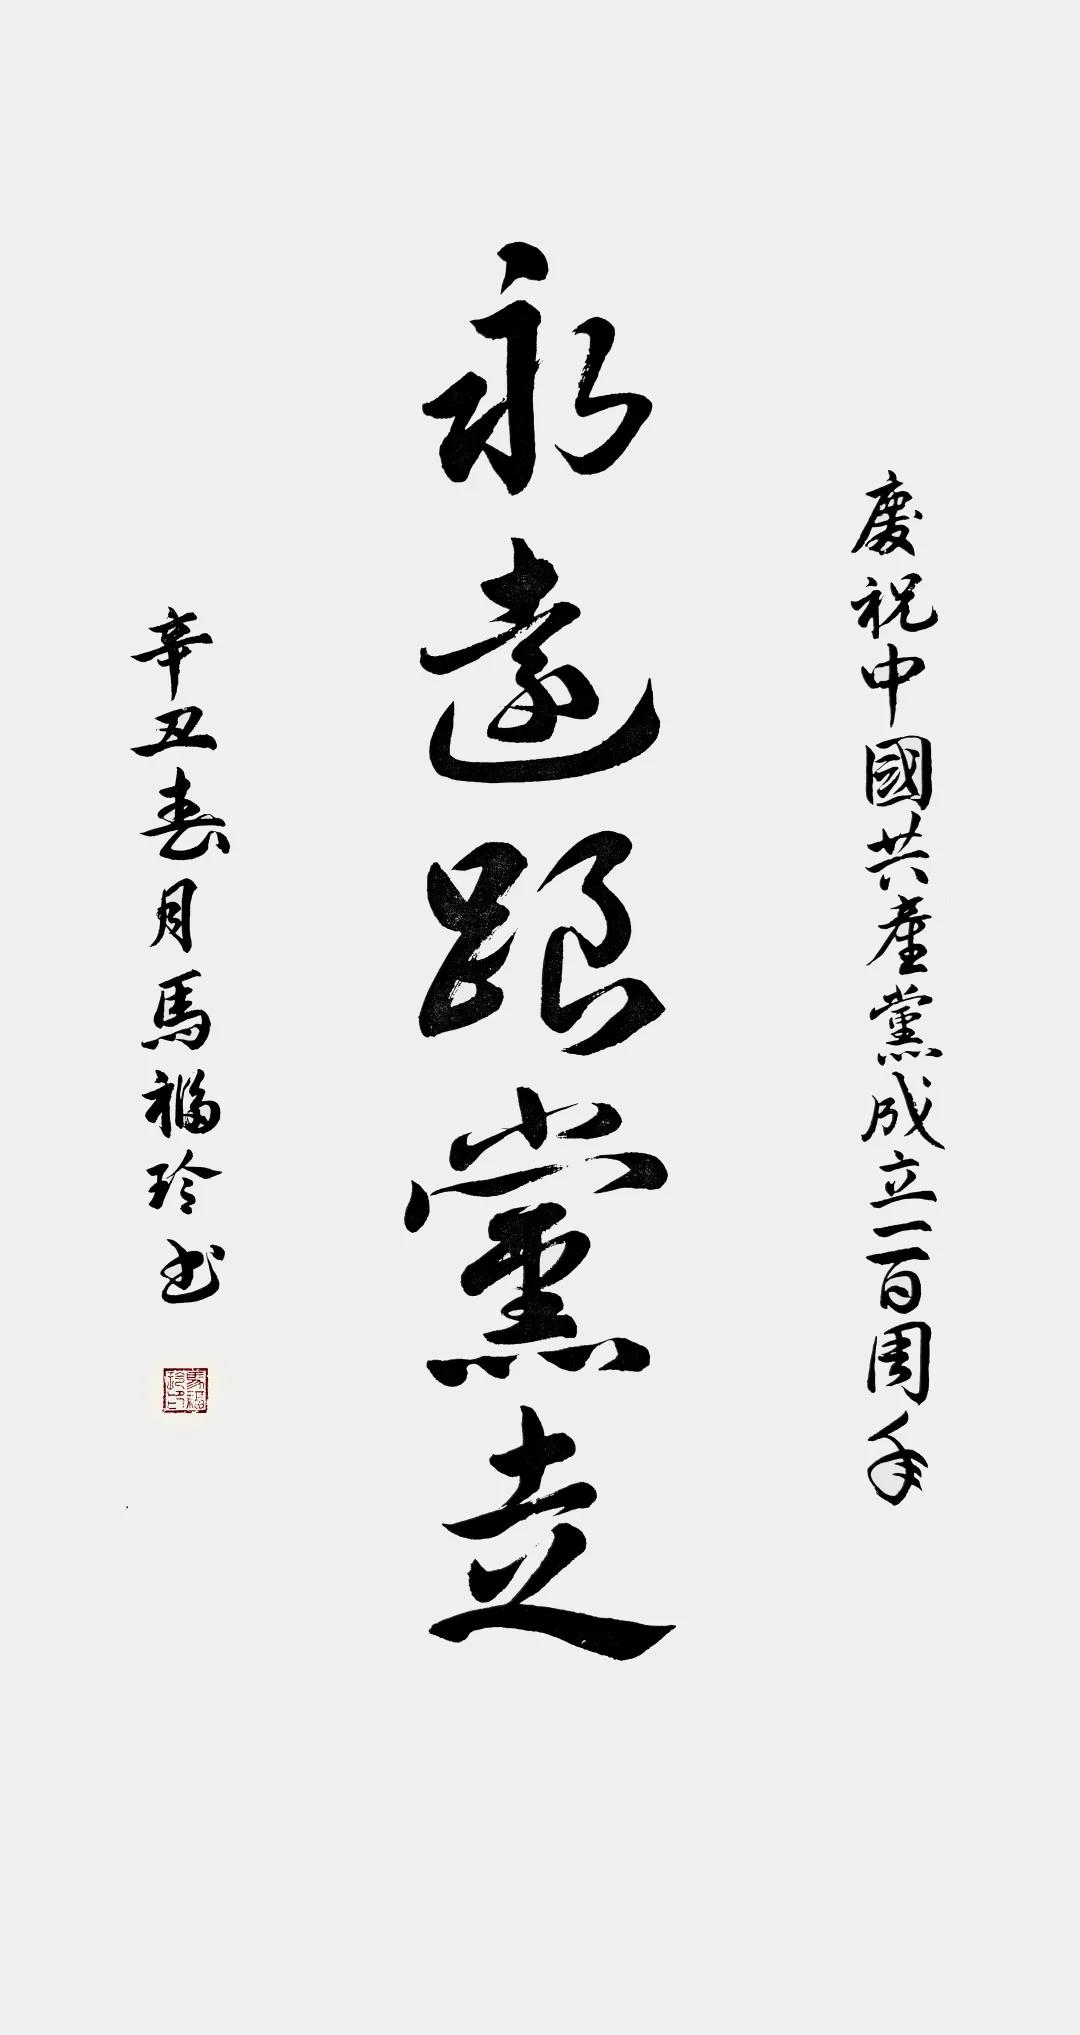 慶祝中國共產黨成立一百周年
永遠跟黨走
辛丑春月馬福玲书
馬福玲印